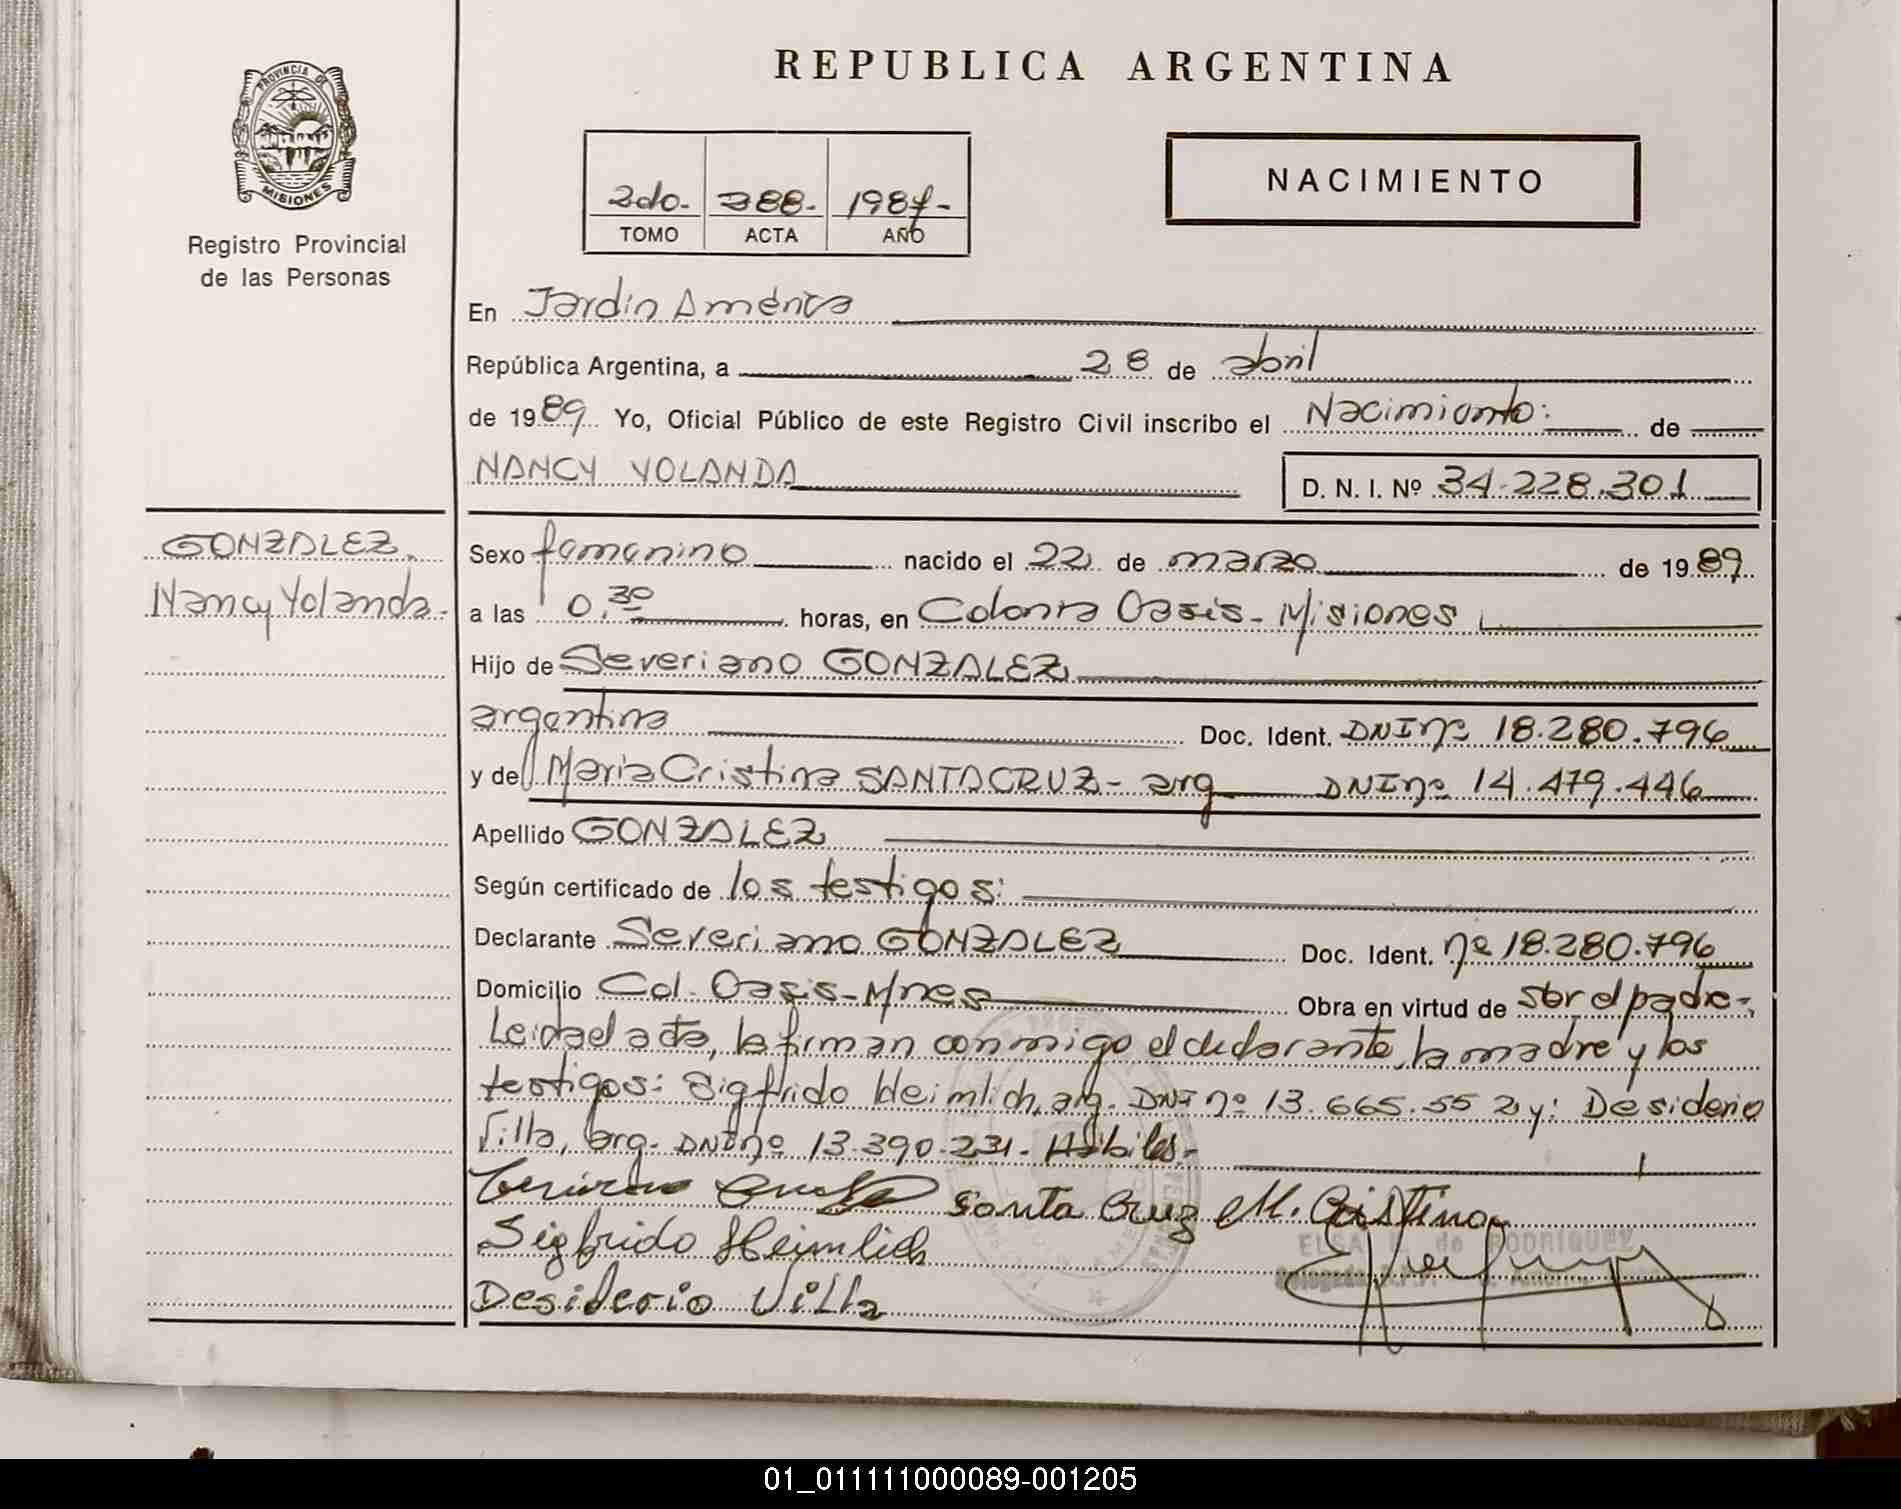 PROVINCIA DE
MISIONES
Registro Provincial
de las Personas
REPUBLICA ARGENTINA
2do. 388. 1989.
TOMO ACTA AÑO
NACIMIENTO
En Jardín América
República Argentina, a 28 de abril
de 1989 Yo, Oficial Público de este Registro Civil inscribo el Nacimiento: de
NANCY YOLANDA D. N. I. Nº 34.228.301
GONZALEZ.
Nancy Yolanda.
Sexo femenino nacido el 22 de marzo de 1989
a las 0,30 horas, en Colonia Oasis - Misiones
Hijo de Severiano GONZALEZ
argentina Doc. Ident. DNI nº 18.280.796
y de María Cristina SANTACRUZ - arg DNI nº 14.479.446
Apellido GONZALEZ
Según certificado de los testigos:
Declarante Severiano GONZALEZ Doc. Ident. nº 18.280.796
Domicilio Col. Oasis - Mnes Obra en virtud de ser el padre.
Leida el acta, la firman conmigo el declarante, la madre y los
testigos: Sigfrido Heimlich, arg. DNI nº 13.665.552 y: Desiderio
Villa, arg. DNI nº 13.390.231. Hábiles.
Santa Cruz M. Cristina
Sigfrido Heimlich
ELSA de RODRIGUEZ
Desiderio Villa
01_011111000089-001205